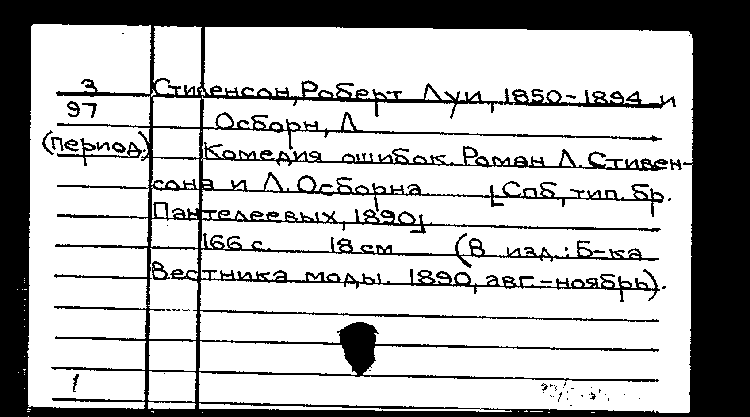 3 Стивенсон, Роберт Луи, 1850-1894 и
97 Осборн, Л
(период.) Комедия ошибок. Роман Л. Стивен-
сона и Л. Осборна [Спб, тип. бр.
Пантелеевых, 1890]
166 с. 18 см (В изд.: Б-ка
Вестника моды. 1890, авг.-ноябрь).
1